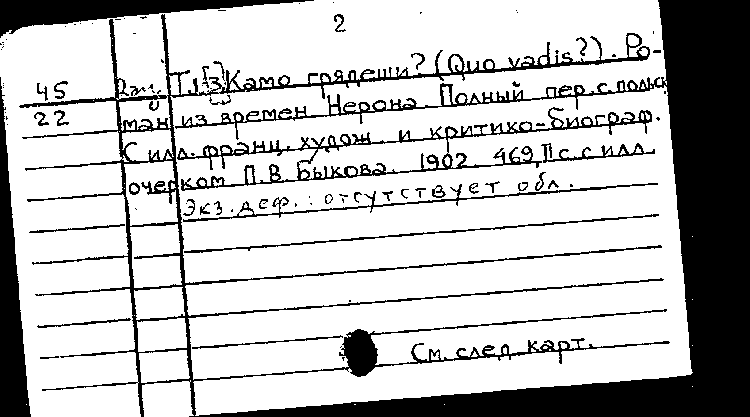 2
45 Т.1-[3] Камо грядеши? (Quo vadis?). Ро-
22 ман из времен Нерона. Полный пер. с польск.
С илл. франц. худож. и критико-биограф.
очерком П.В. Быкова. 1902. 469, II с. с илл.
Экз. деф.: отсутствует обл.
См. след. карт.